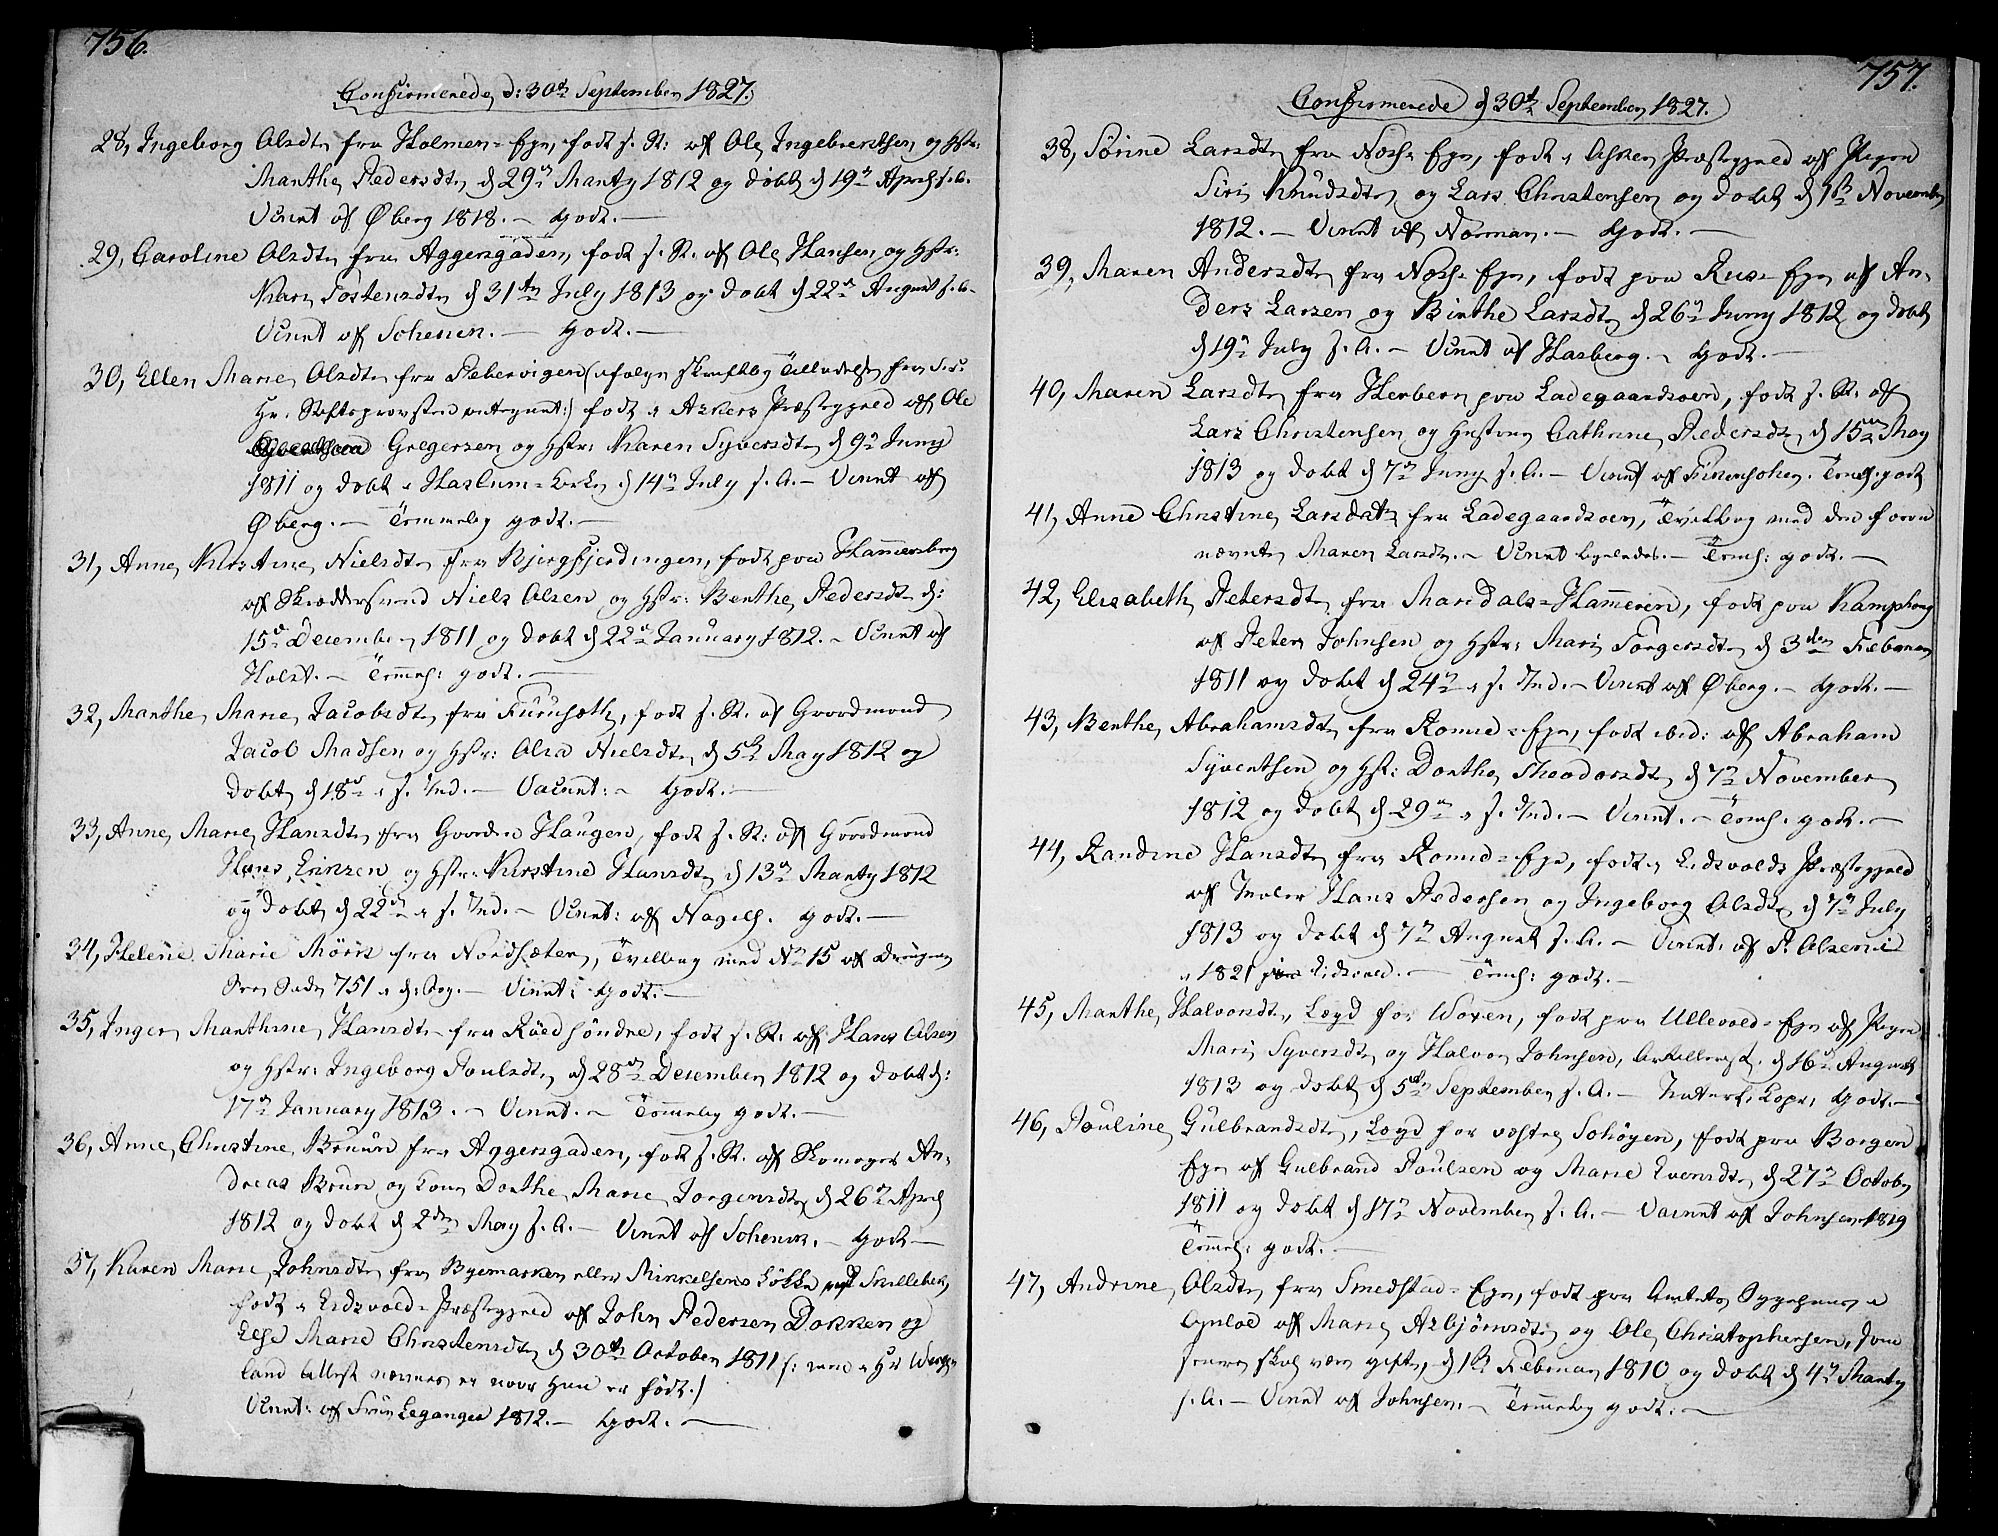 756.
Confirmerede, d: 30te September 1827.
28, Ingeborg Olsdtr fra Holmen-Eje, født s. St: af Ole Ingebretsen og Hstr:
Marthe Pedersdtr d 29de Marty 1812 og døbt d 19de April s. A.
Vaxnt af Øberg 1818. — Godt. —
29, Caroline Olsdtr fra Aggersgaden, født s. St. af Ole Hansen og Hstr:
Kari Tostensdtr d 31te July 1813 og døbt d 22de August s. A.
Vaxnt af Schenck. — Godt. —
30, Ellen Marie Olsdtr fra Pebervigen (ifølge skriftlig Tilladelse fra
Hr. Stiftsprovsten antegnet:) født i Askers Præstegjeld af Ole
Gregersen og Hstr: Karen Syversdtr d 9de Juny
1811 og døbt i Haslum-Kirke d 14de July s. A. — Vaxnt af
Øberg. — Temmelig godt. —
31, Anne Kirstine Nielsdtr fra Bjergfjerdingen, født paa Hammersborg
af Skræddersvend Niels Olsen og Hstr: Berthe Pedersdtr d:
15de December 1811 og døbt d 22de January 1812. — Vaxnt af
Holst. — Temmel: godt. —
32, Marthe Marie Jacobsdtr fra Furusæth, født s. St. af Gaardmand
Jacob Madsen og Hstr: Olea Nielsdtr d 5te May 1812 og
døbt d 18de i s. Md. — Vaxnt: — Godt. —
33, Anne Marie Hansdtr fra Gaarden Haugen, født s. St: af Gaardmand
Hans Erixen og Hstr: Kirstine Hansdtr d 13de Marty 1812
og døbt d 22de i s. Md. — Vaxnt: af Nagels. Godt. —
34, Helene Marie Mörk fra Nordsæter, Tvilling med No 15 af Drengene
See Side 751 i d: Bog. — Vaxnt: Godt. —
35, Inger Marthine Hansdtr fra Røed søndre, født s. St. af Hans Olsen
og Hstr: Ingeborg Poulsdtr d 28de December 1812 og døbt d:
17de January 1813. — Vaxnt. — Temmelig godt. —
36, Anne Christine Bruun fra Aggersgaden, født s. St. af Skomager An-
dreas Bruun og Kone Dorthe Marie Jørgensdtr d 26de April
1812 og døbt d 2den May s. A. — Vaxnt af Schenck. — Godt —
37, Karen Marie Johnsdtr fra Byemarken eller Minkelsens Løkke ved Skillebek,
født i Eidsvold-Præstegjeld af John Pedersen Dokken og
Else Marie Christensdtr d 30te October 1811
land Attest nævnes ei naar hun er født.)
Vaxnt: af Leganger 1812. — Godt. —
757.
Confirmerede d 30te September 1827.
38, Sörine Larsdtr fra Eje, født i Asker Præstegjeld af Pigen
Siri Knudsdtr og Lars Christensen og døbt d 1te November
1812. — Vaxnt af Norman. — Godt. —
39, Maren Andersdtr fra Eje, født paa Eje af An-
ders Larsen og Birthe Larsdtr d 26de Juny 1812 og døbt
d 19de July s. A. — Vaxnt af Hasberg. — Godt. —
40, Maren Larsdtr fra Herbern paa Ladegaardsøen, født s. St. af
Lars Christensen og Hustrue Cathrine Pedersdtr d 15de May
1813 og døbt d 7de Juny s. A. — Vaxnt af Temel: godt
41, Anne Christine Larsdatr fra Ladegaardsøen, Tvilling med den foran
nævnte Maren Larsdtr. — Vaxnt ligeledes. — Temel: godt. —
42, Elisabeth Petersdtr fra Maridals-Hammeren, født paa Kamphoug
af Peter Johnsen og Hstr: Mari Torgersdtr d 3den Februar
1811 og døbt d 24de i s. Md. — Vaxnt af Øberg. — Godt. —
43, Berthe Abrahamsdtr fra Eje, født ibid: af Abraham
Syvertsen og Hst: Dorthe Theodorsdtr d 7de November
1812 og døbt d 29de i s. Md. — Vaxnt. — Temel: godt. —
44, Randine Hansdtr fra Eje, født i Eidsvolds Præstegjeld
af Hans Pedersen og Ingeborg Olsdtr d 7de July
1813 og døbt d 7de August s. A. — Vaxnt: af P. Olsen
i 1821 Eidsvold. — Temel: godt. —
45, Marthe Halvorsdtr, Lægd for Woxen, født paa Ullevold-Eje af Pigen
Mari Syversdtr og Halvor Johnsen, Artillerist. d 16de August
1813 og døbt d 5te September s. A. — Naturl. Kopr, Godt. —
46, Pouline Gulbrandsdtr, Lægd for vestre Schøyen, født paa Borgen
Eje af Gulbrand Poulsen og Marie Evensdtr d 27de October
1811 og døbt d 17de November s. A. — Vaxnt af Johnsen 1819
Temel: godt. —
47, Andrine Olsdtr fra Smedstad-Eje, født paa Amtets Sygehuus i
af Marie Asbjørnsdtr og Ole Christophersen, som
senere skal være gifte, d 1te Februar 1810 og døbt d 4de Marty
s. A. — Vaxnt af Johnsen. — Temmelig godt. —